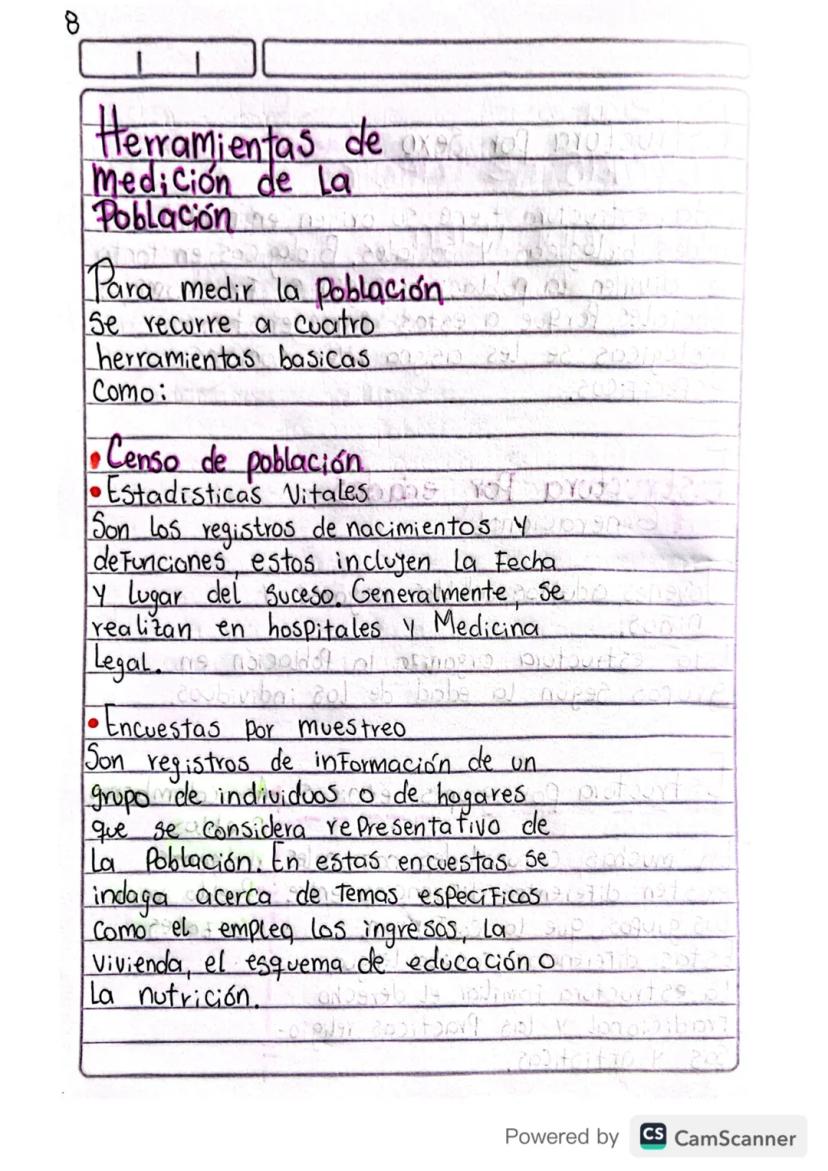 8
Herramientas de
medición de la
Población
Para medir la Población
se recurre a cuatro
herramientas basicas
como:
• Censo de población
• Estadísticas Vitales
Son los registros de nacimientos y
defunciones, estos incluyen la Fecha
y lugar del suceso. Generalmente, se
realizan en hospitales y Medicina
Legal.
• Encuestas por muestreo
Son registros de información de un
grupo de individuos o de hogares
que se considera representativo de
la Población. En estas encuestas se
indaga acerca de temas específicos
como el empleo, los ingresos, la
vivienda, el esquema de educación o
la nutrición.
Powered by CS CamScanner